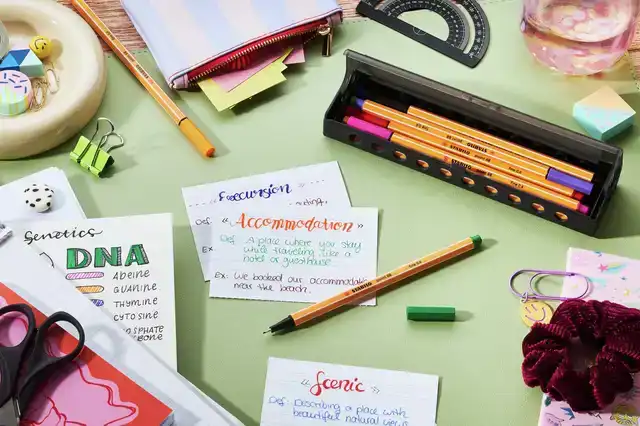 Excursion
Def:
Ex
"Accommodation"
Def: A place where you stay
while traveling, like a
hotel or guesthouse
Ex: We booked our accommodation
near the beach.
Genetics
DNA
Adeine
Guanine
Thymine
Cytosine
STABILO
"Scenic"
Def: Describing a place with
beautiful natural